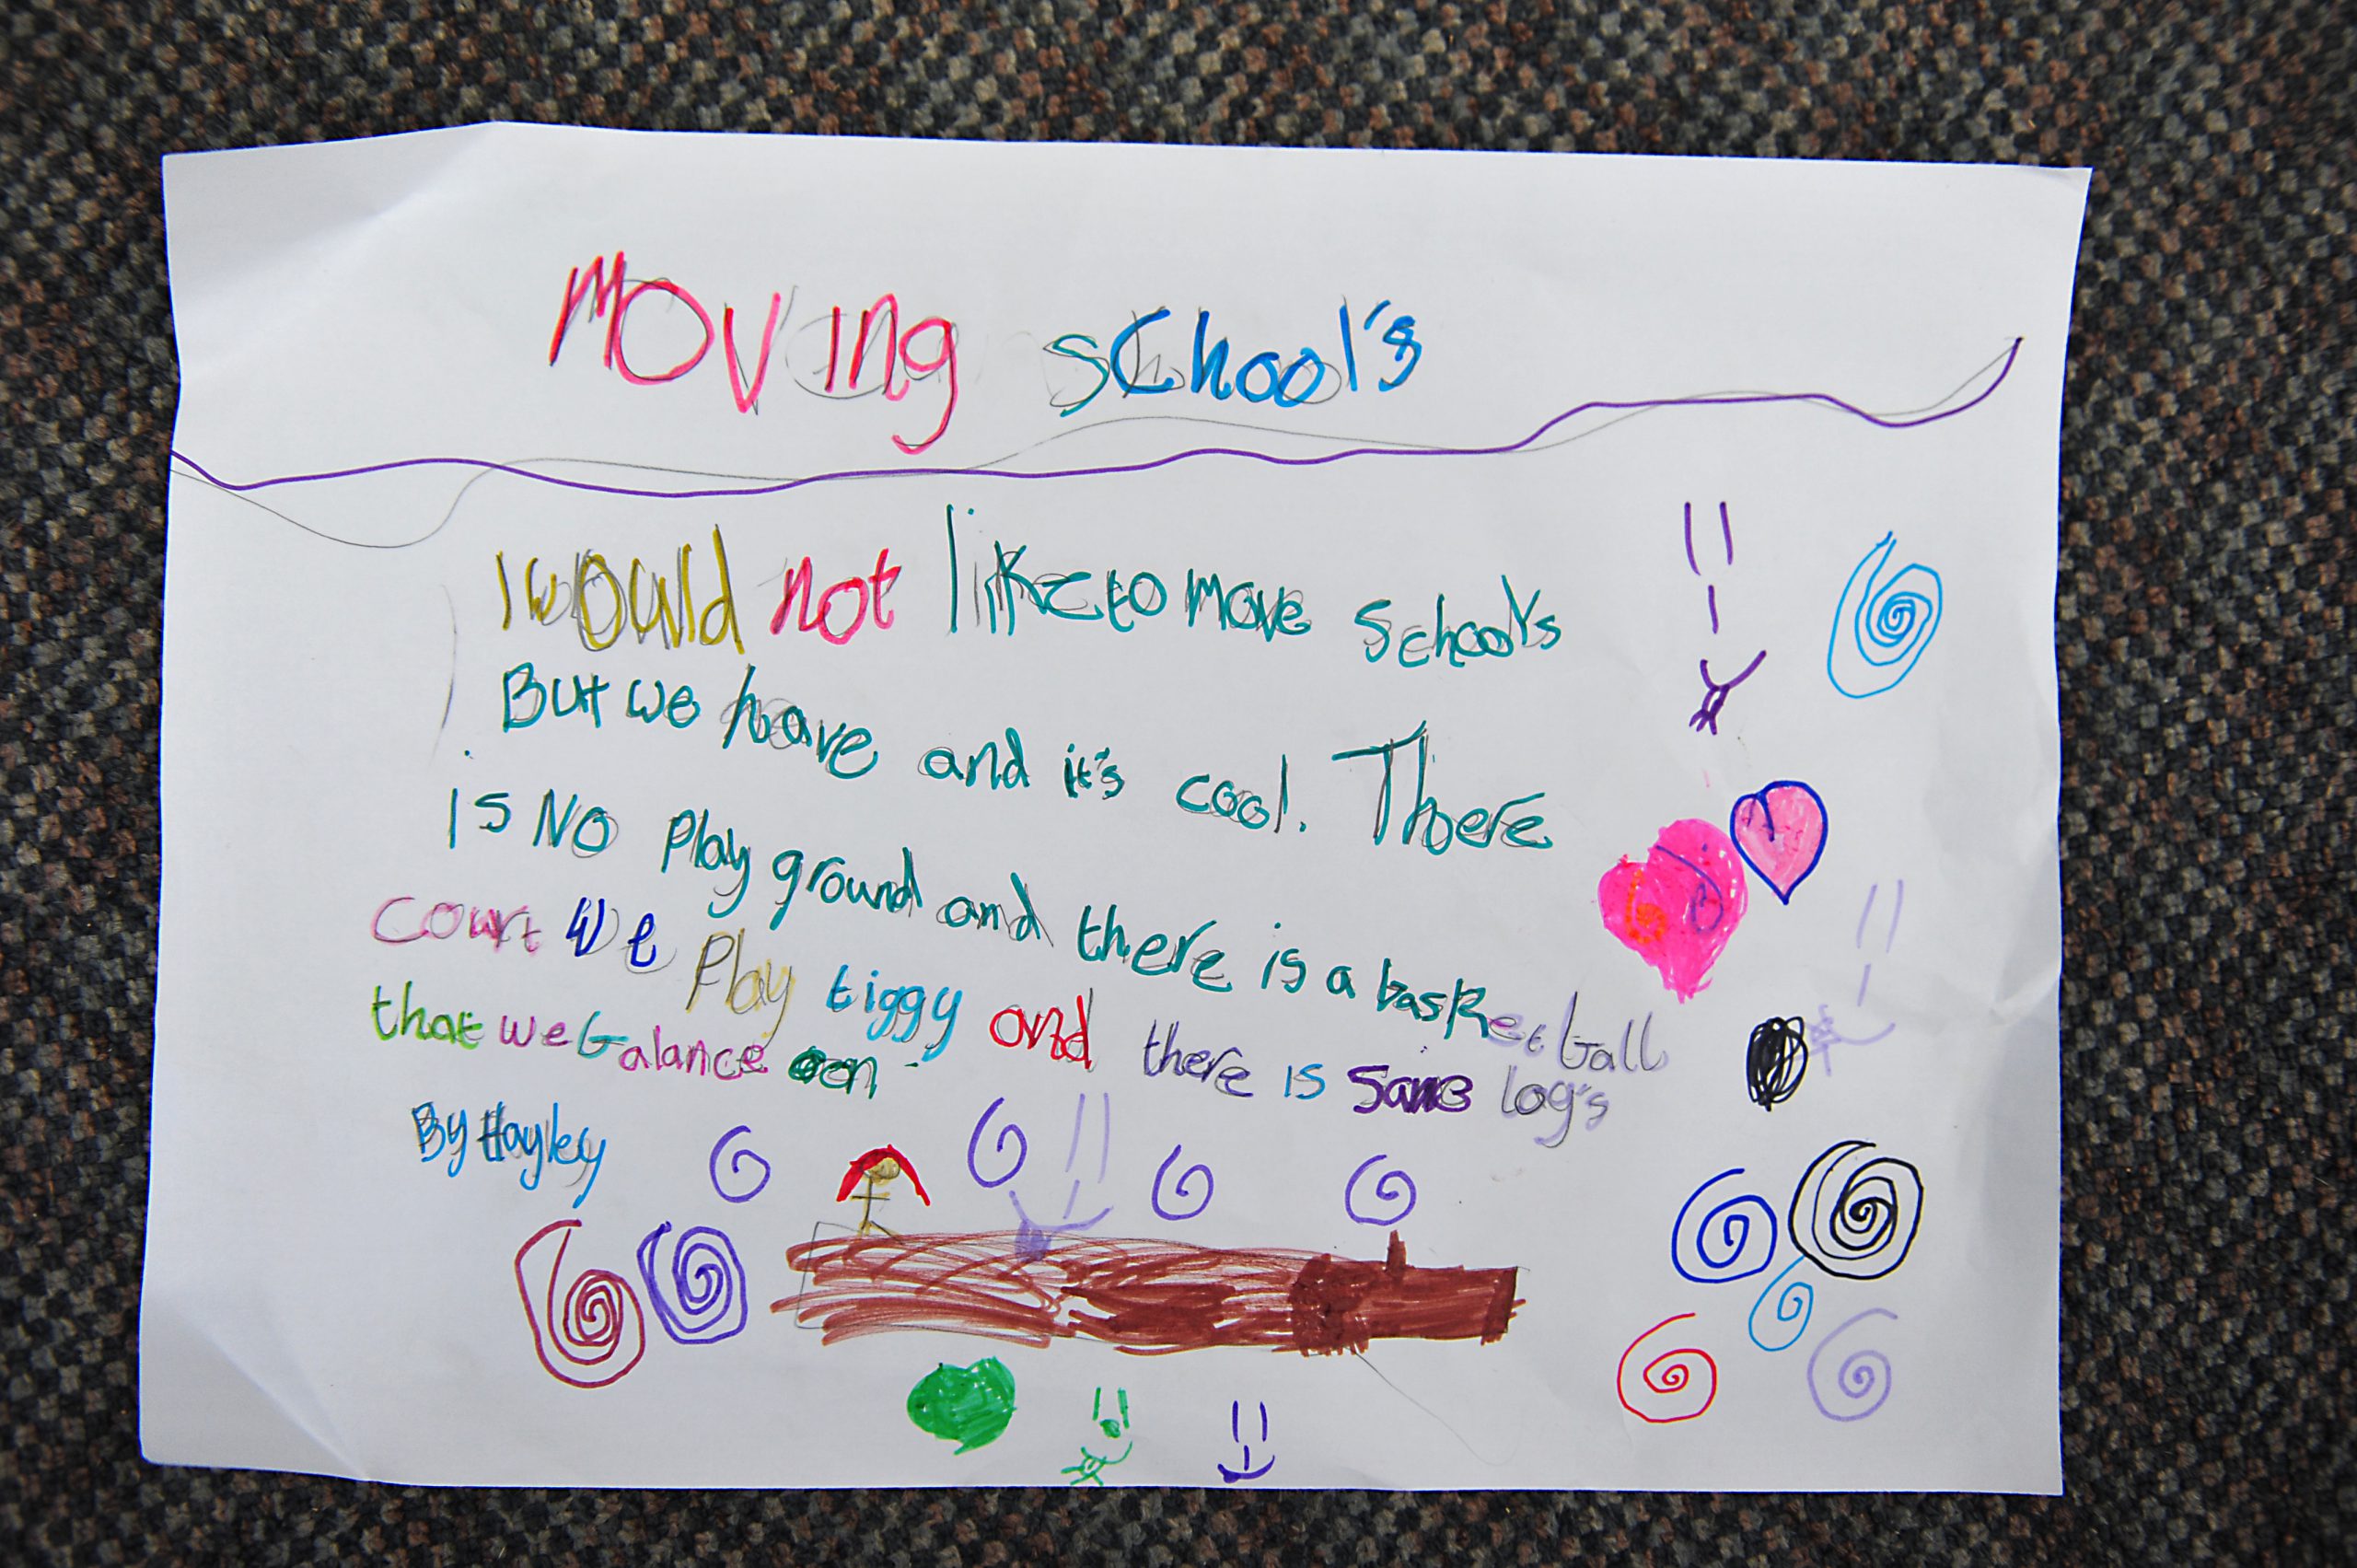 Moving school's
I would not like to move school's
But we have and it's cool. There
is No Play ground and there is a basketball
court we play tiggy and there is some log's
that we balance on.
By Hayley